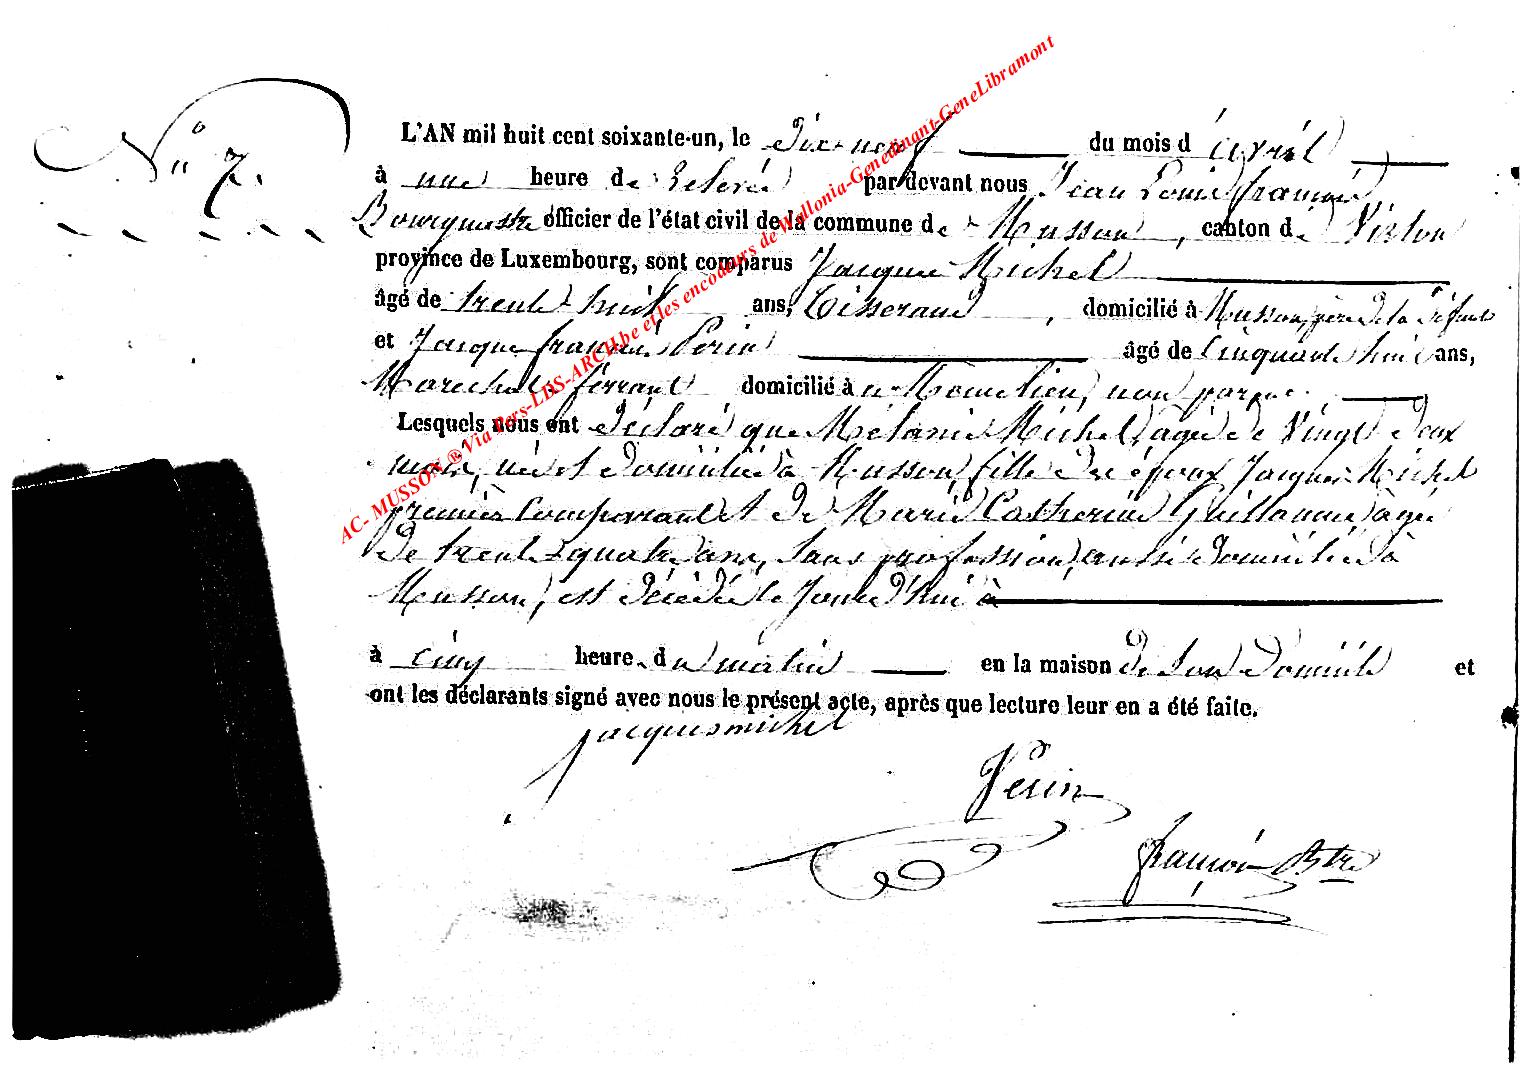 N° 7.
L'AN mil huit cent soixante-un, le dix-neuf du mois d'avril
à une heure de relevée par devant nous Jean Louis François
Bourgmestre officier de l'état civil de la commune de Musson, canton de Virton
province de Luxembourg, sont comparus Jacques Michel
âgé de trente-huit ans, tisserand, domicilié à Musson, père de la défunte
et Jacques François Perin âgé de cinquante huit ans,
Marechal ferrant domicilié à non parent.
Lesquels nous ont déclaré que Mélanie Michel, agée de Vingt deux
mois, née et domiciliée à Musson, fille des époux Jacques Michel
premier Comparant et de Marie Catherine Guillaume agée
de trente quatre ans, sans profession, aussi domiciliée à
Musson, est décédée le jourd'hui à
à cinq heure du matin en la maison de son domicile et
ont les déclarants signé avec nous le présent acte, après que lecture leur en a été faite.
jacques michel
Perin
François Bstre
AC- MUSSON ® Via Pers-LDS-ARCH.be et les encodeurs de Wallonia-Genedinant-GeneLibramont